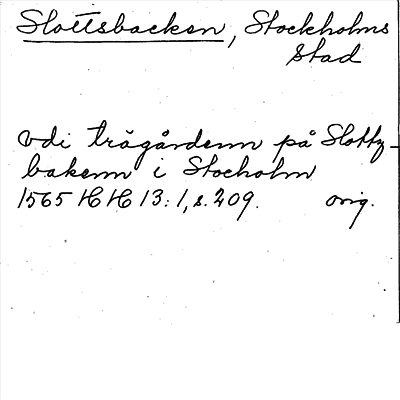 Slottsbacken, Stockholms
Stad
vdi trägårdenn på Slottz-
bakenn i Stocholm
1565 HH 13:1, s. 209. orig.